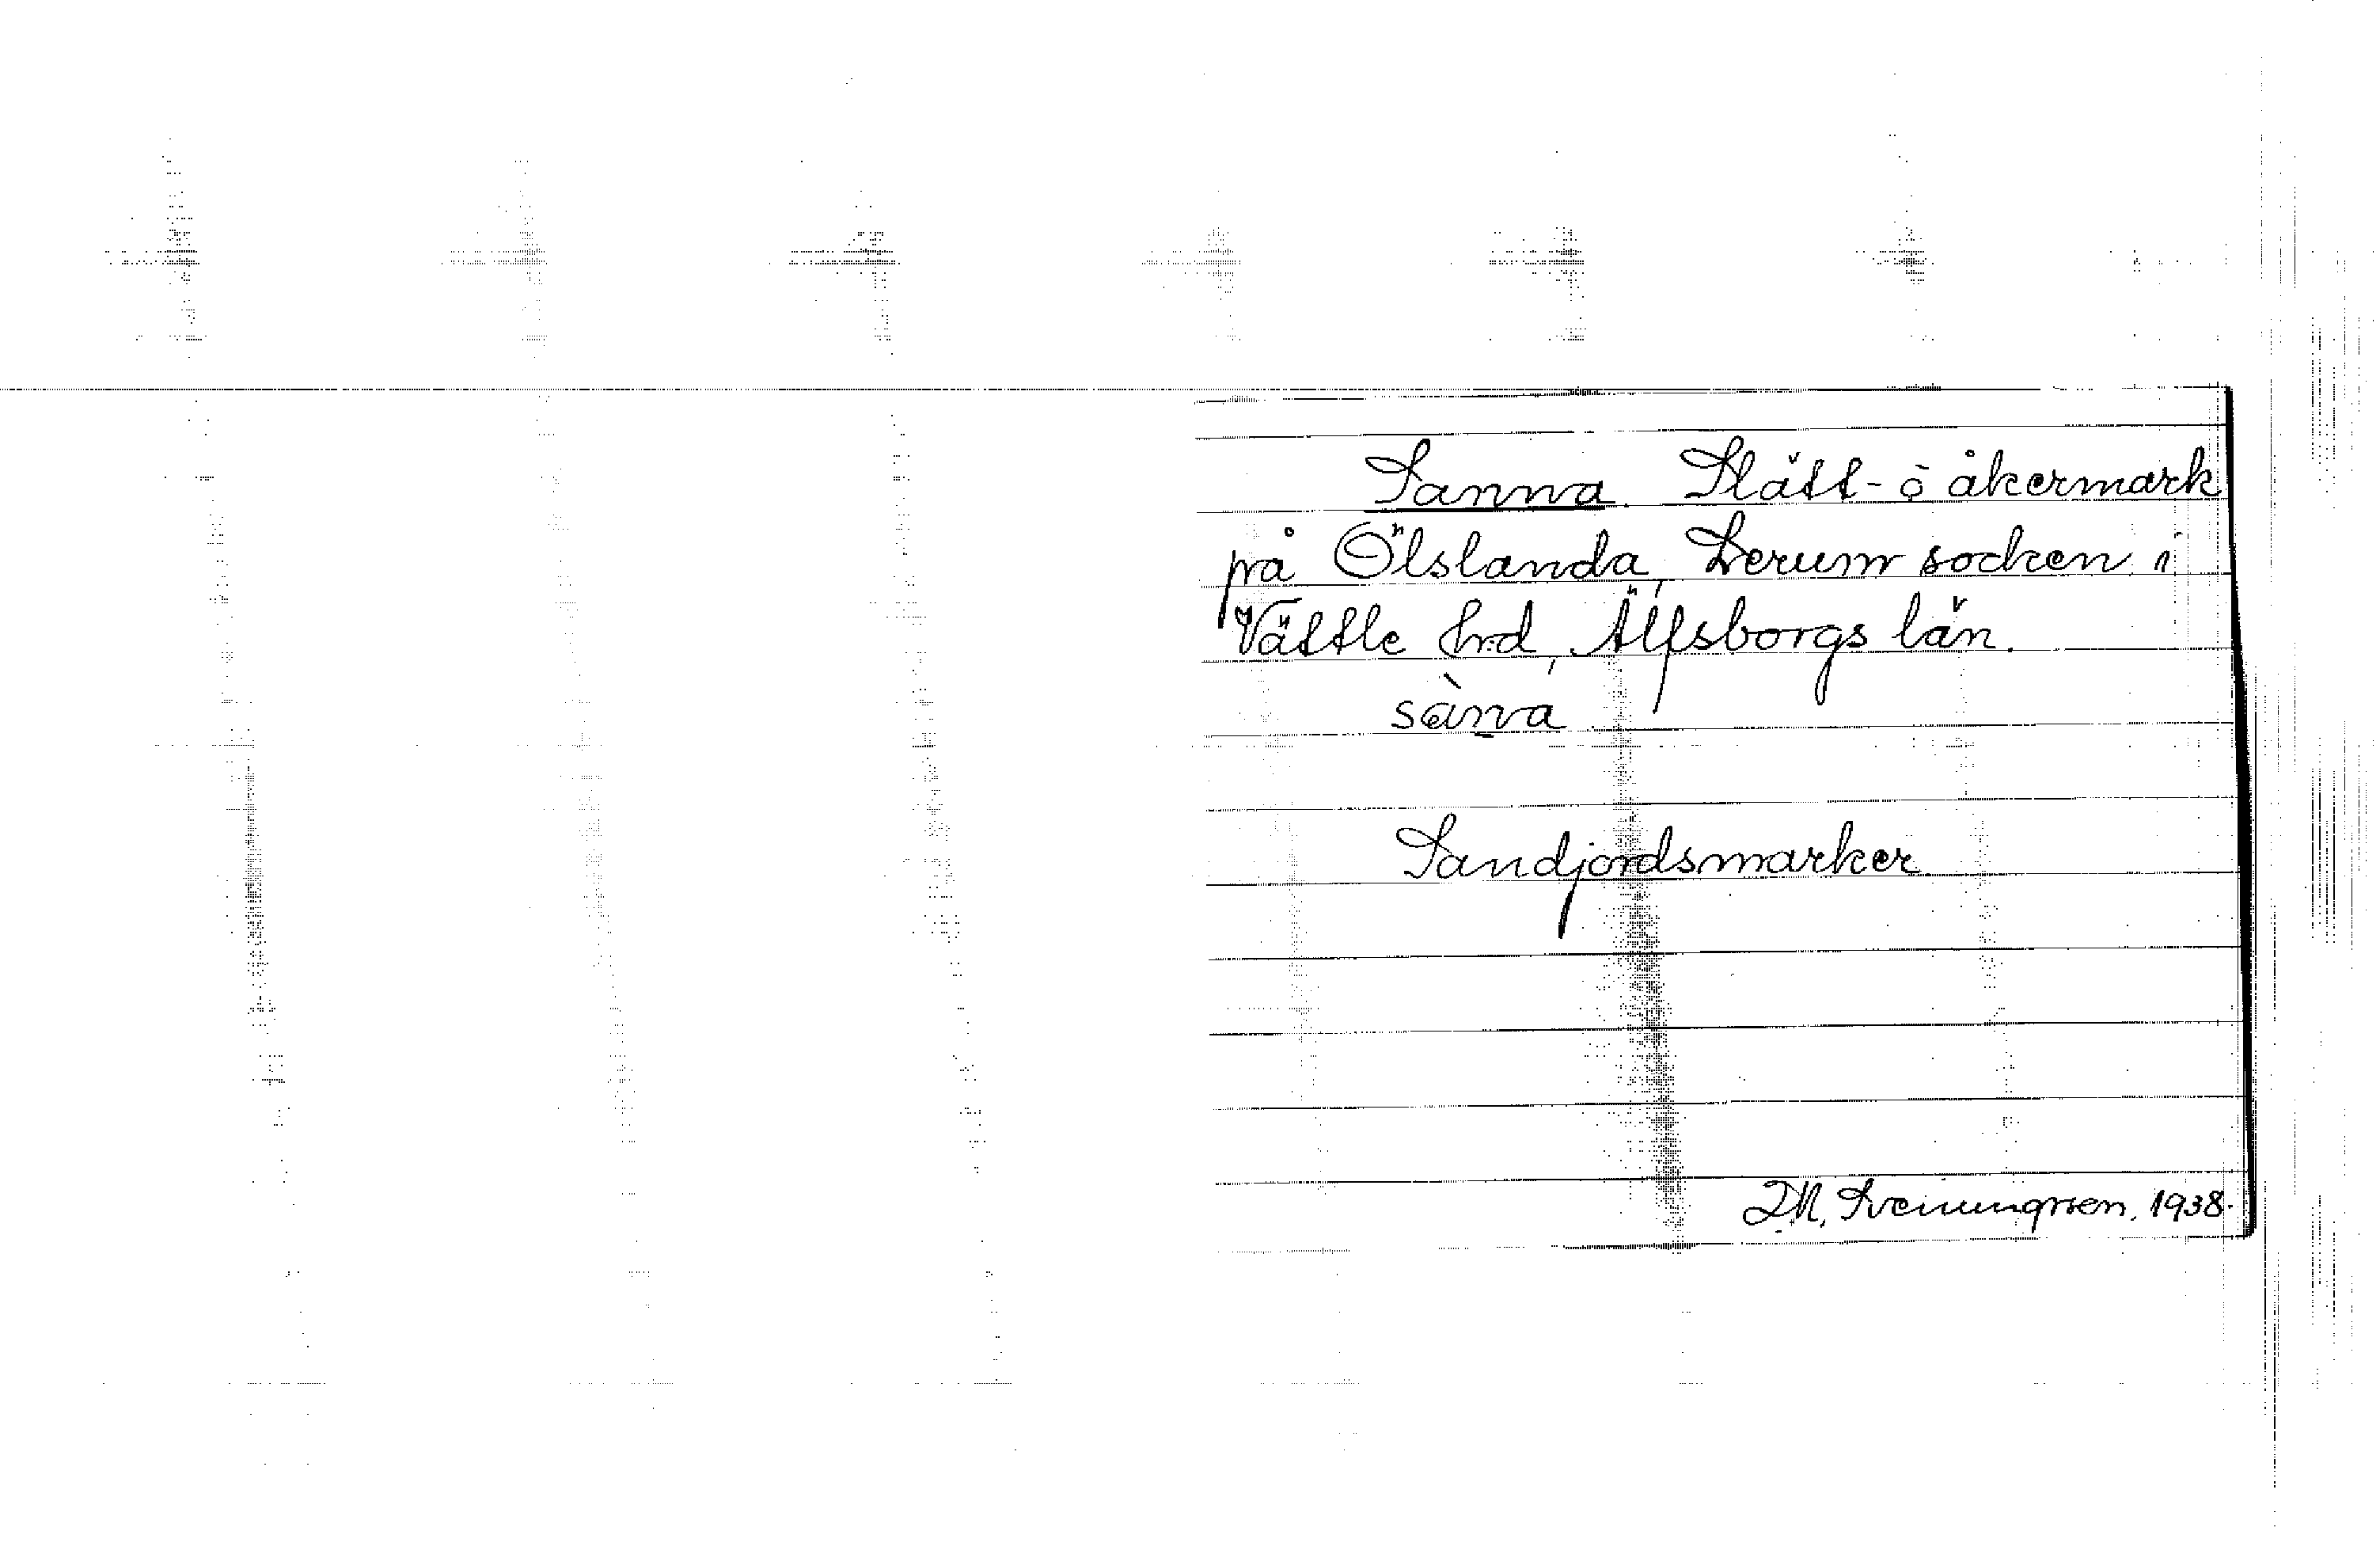 Sanna. Slätt- o åkermark
på Ölslanda, Lerum socken i
Vättle hrd, Älfsborgs län.
sàn̲a
Sandjordsmarker
1938.